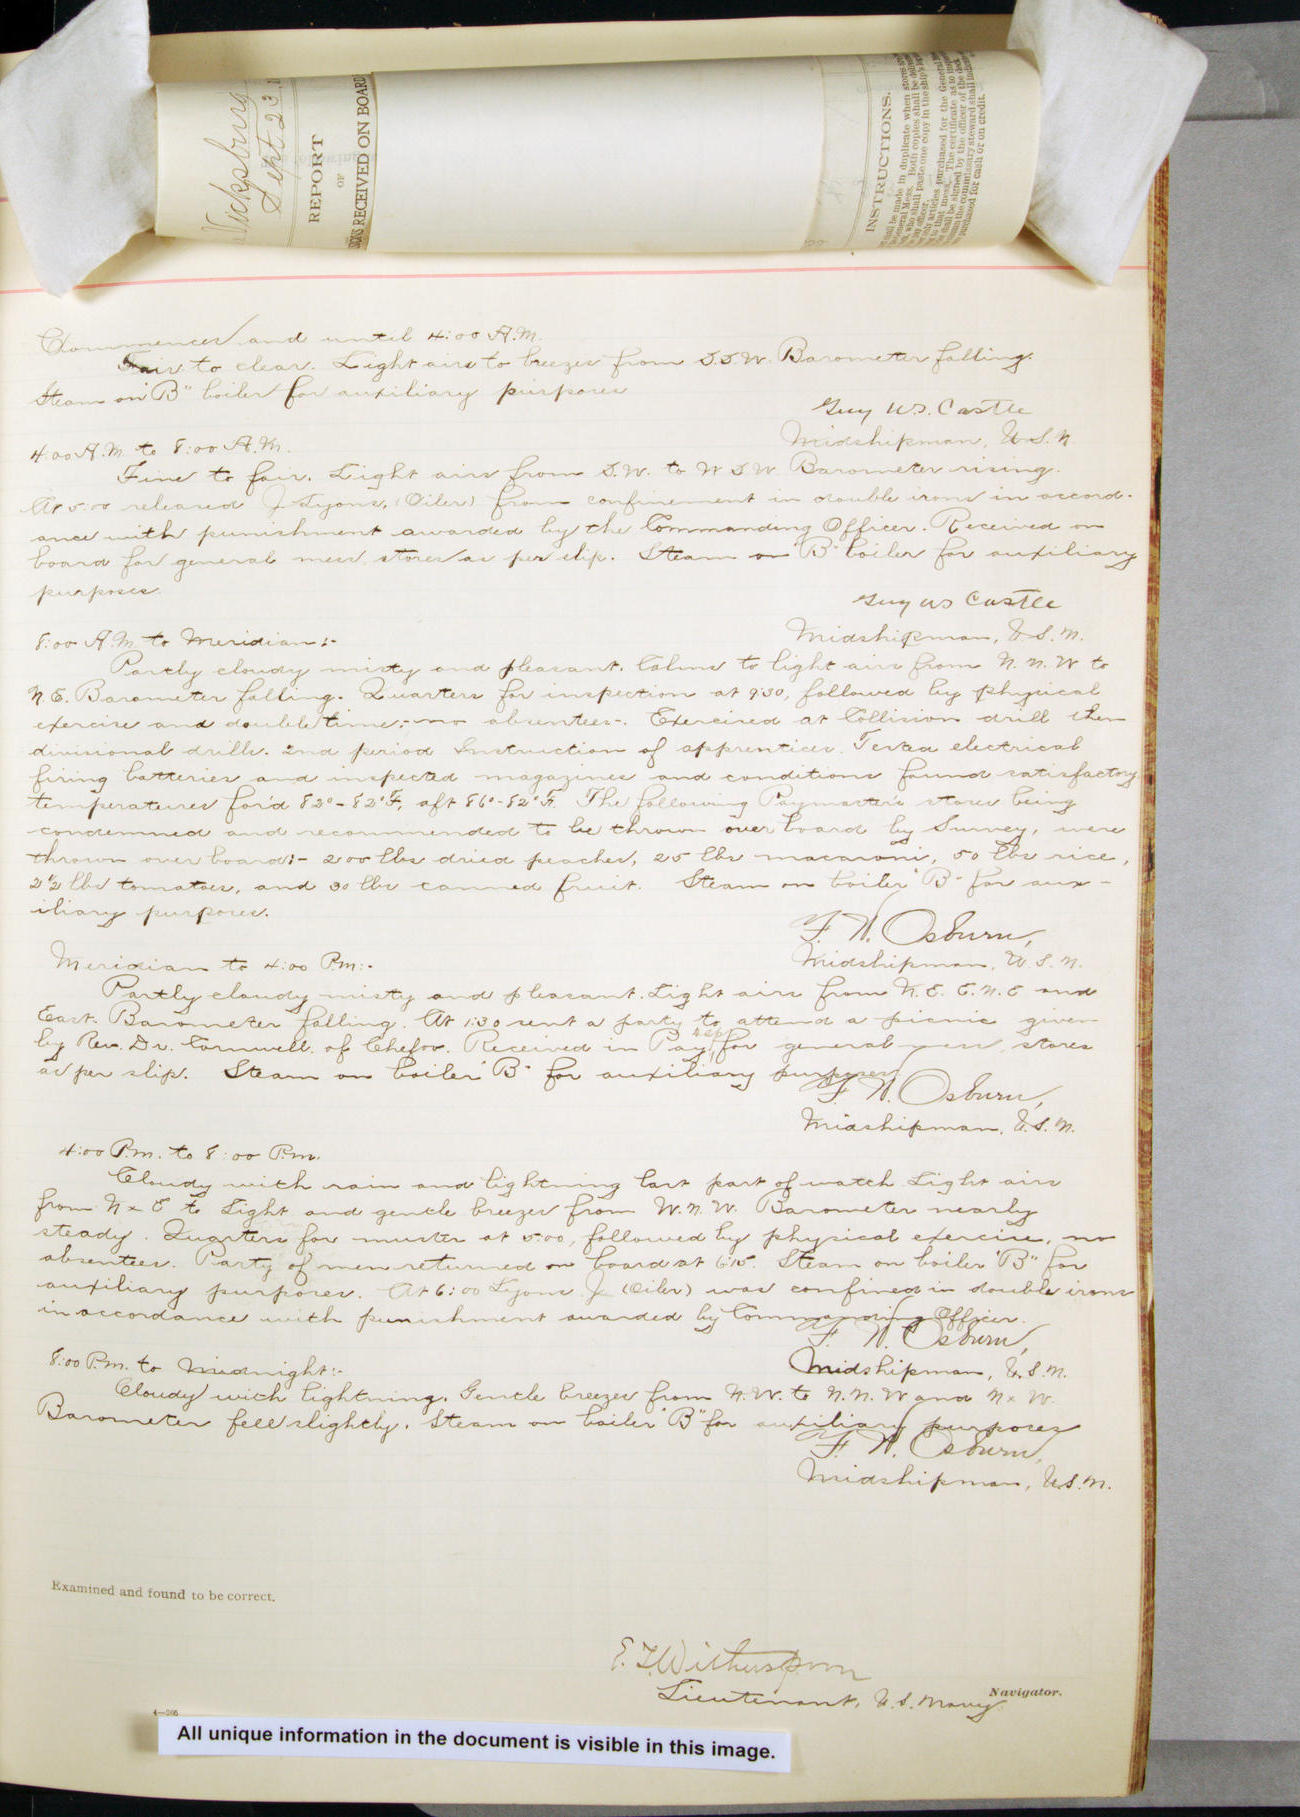 Vicksburg
Sept. 23,
REPORT
OF
RECEIVED ON BOARD
INSTRUCTIONS.
Commences and until 4:00 A.M.
Fair to clear. Light airs to breezes from S.S.W. Barometer falling.
Steam on "B" boiler for auxiliary purposes
Guy W.S. Castle
Midshipman, U.S.N.
4:00 A.M. to 8:00 A.M.
Fine to fair. Light airs from S.W. to W S W. Barometer rising.
At 5:00 released J Lyons, (Oiler) from confinement in double irons in accord-
ance with punishment awarded by the Commanding Officer. Received on
board for general mess stores as per slip. Steam on "B" boiler for auxiliary
purposes.
Guy W S Castle
Midshipman, U.S.N.
8:00 A.M to Meridian:-
Partly cloudy misty and pleasant. Calms to light airs from N.N.W to
N.E. Barometer falling. Quarters for inspection at 9:30, followed by physical
exercise and double time;- no absentees-. Exercised at Collision drill then
divisional drills. 2nd period Instruction of apprentices. Tested electrical
firing batteries and inspected magazines and conditions found satisfactory
temperatures for'd 82°-82°F, aft 86°-82°F. The following Paymaster's stores being
condemned and recommended to be thrown overboard by Survey, were
thrown over board:- 200 lbs dried peaches, 25 lbs macaroni, 50 lbs rice,
2 1/2 lbs tomatoes, and 30 lbs canned fruit. Steam on boiler "B" for aux-
iliary purposes.
F. W. Osburn,
Midshipman, U.S.N.
Meridian to 4:00 P.M:-
Partly cloudy misty and pleasant. Light airs from N.E. E.N.E and
East. Barometer falling. At 1:30 sent a party to attend a picnic given
by Rev. Dr. Cornwell. of Chefoo. Received in Pay for general mess stores
as per slip. Steam on boiler "B" for auxiliary purposes
F. W. Osburn,
Midshipman, U.S.N.
4:00 P.m. to 8:00 P.m.
Cloudy with rain and lightning last part of watch Light airs
from N x E to Light and gentle breezes from W.N.W. Barometer nearly
steady. Quarters for muster at 5:00, followed by physical exercise, no
absentees. Party of men returned on board at 6:15. Steam on boiler "B" for
auxiliary purposes. At 6:00 Lyons J (Oiler) was confined in double irons
in accordance with punishment awarded by Commanding Officer.
F. W. Osburn,
Midshipman, U.S.N.
8:00 P.m. to Midnight:-
Cloudy with lightning. Gentle breezes from N.W. to N.N.W and N x W.
Barometer fell slightly. Steam on boiler "B" for auxiliary purposes
F. W. Osburn,
Midshipman, U.S.N.
Examined and found to be correct.
E. T. Witherspoon
Lieutenant, U.S. Navy
Navigator.
All unique information in the document is visible in this image.